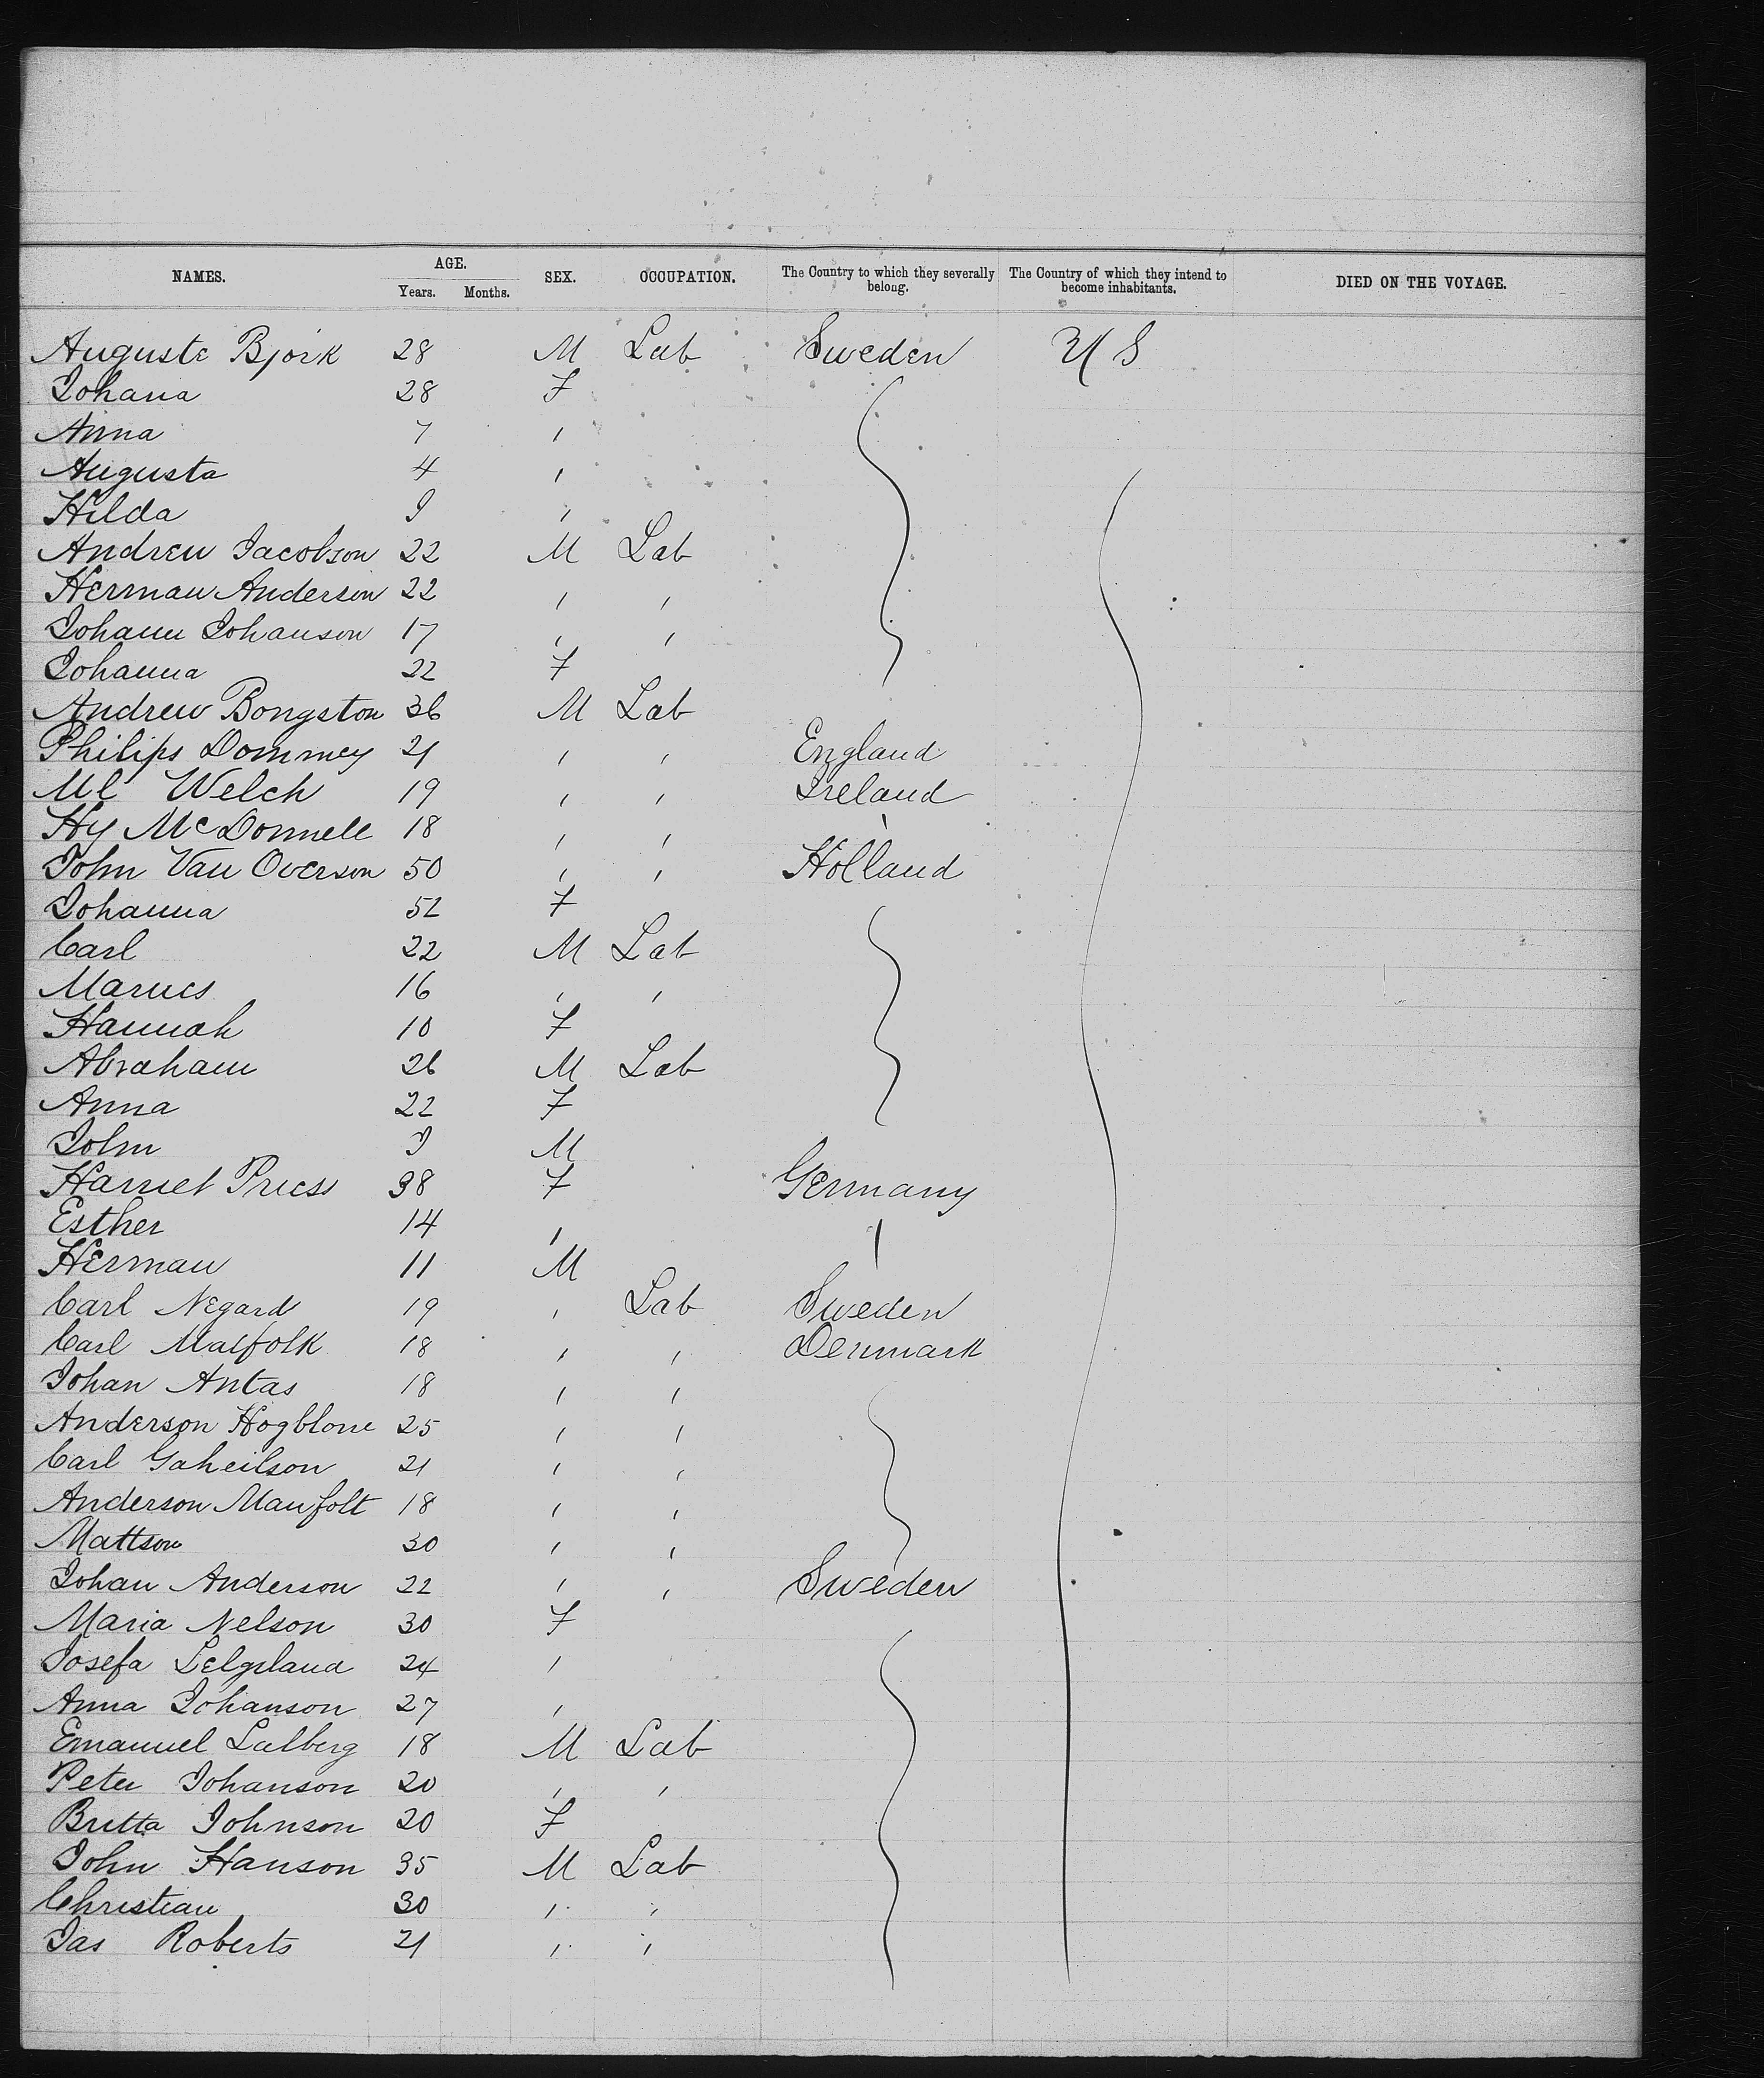 NAMES. AGE. SEX. OCCUPATION. The Country to which they severally belong. The Country of which they intend to become inhabitants. DIED ON THE VOYAGE.
Years. Months.
Auguste Bjork 28 M Lab Sweden U S
Johana 28 F
Anna 7 "
Augusta 4 "
Hilda 9 "
Andrew Jacobson 22 M Lab
Herman Anderson 22 " "
Johann Johanson 17 " "
Johanna 22 F
Andrew Bongston 36 M Lab
Philips Dommey 21 " " England
Ml Welch 19 " " Ireland
Hy McDonnell 18 " " "
John Van Overson 50 " " Holland
Johanna 52 F
Carl 22 M Lab
Marues 16 " "
Hannah 10 F
Abraham 26 M Lab
Anna 22 F
John 9 M
Harriet Press 38 F Germany
Esther 14 "
Herman 11 M
Carl Negard 19 " Lab Sweden
Carl Malfolk 18 " " Denmark
Johan Antas 18 " "
Anderson Hogblone 25 " "
Carl Gaheilson 21 " "
Anderson Manfolt 18 " "
Mattson 30 " "
Johan Anderson 22 " " Sweden
Maria Nelson 30 F
Josefa 24 "
Anna Johanson 27 "
Emanuel Lalberg 18 M Lab
Peter Johanson 20 " "
Britta Johnson 20 F
John Hanson 35 M Lab
Christian 30 " "
Jas Roberts 21 " "